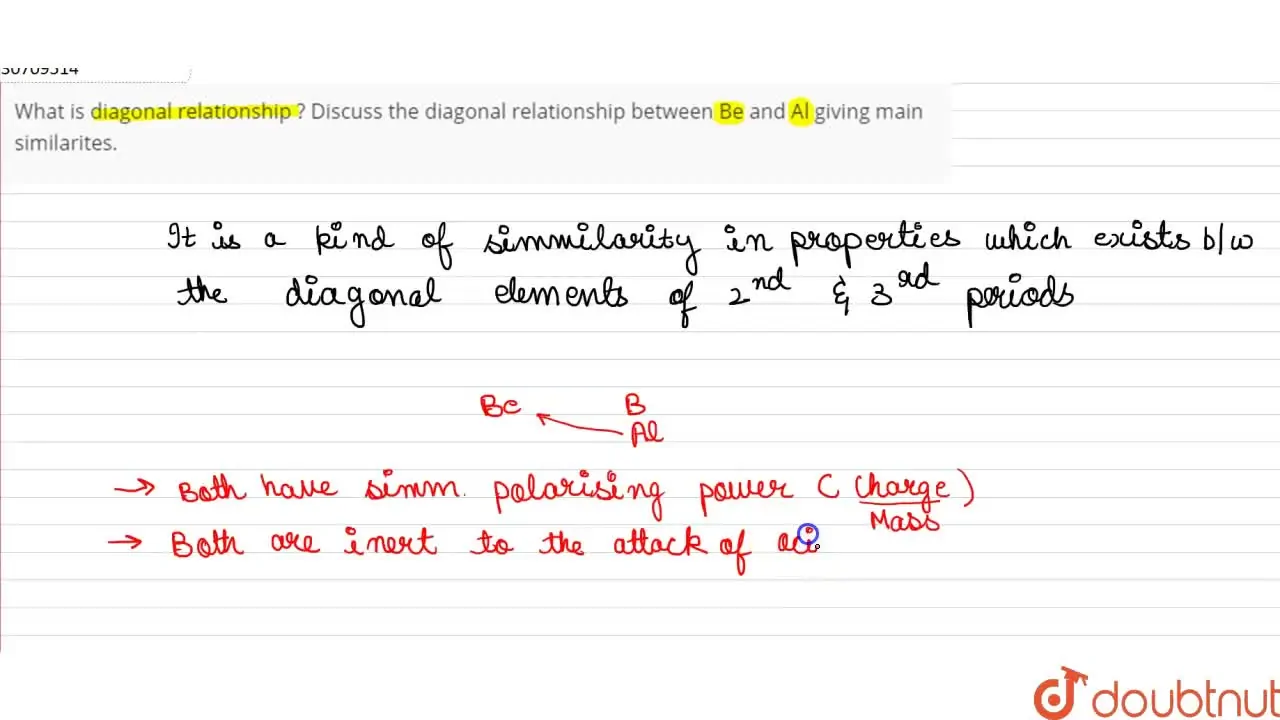 30709514
What is diagonal relationship ? Discuss the diagonal relationship between Be and Al giving main
similarites.
It is a kind of simmilarity in properties which exists b/w
the diagonal elements of 2nd & 3rd periods
Be B
Al
→ Both have simm. polarising power ( Charge )
Mass
→ Both are inert to the attack of aci
doubtnut